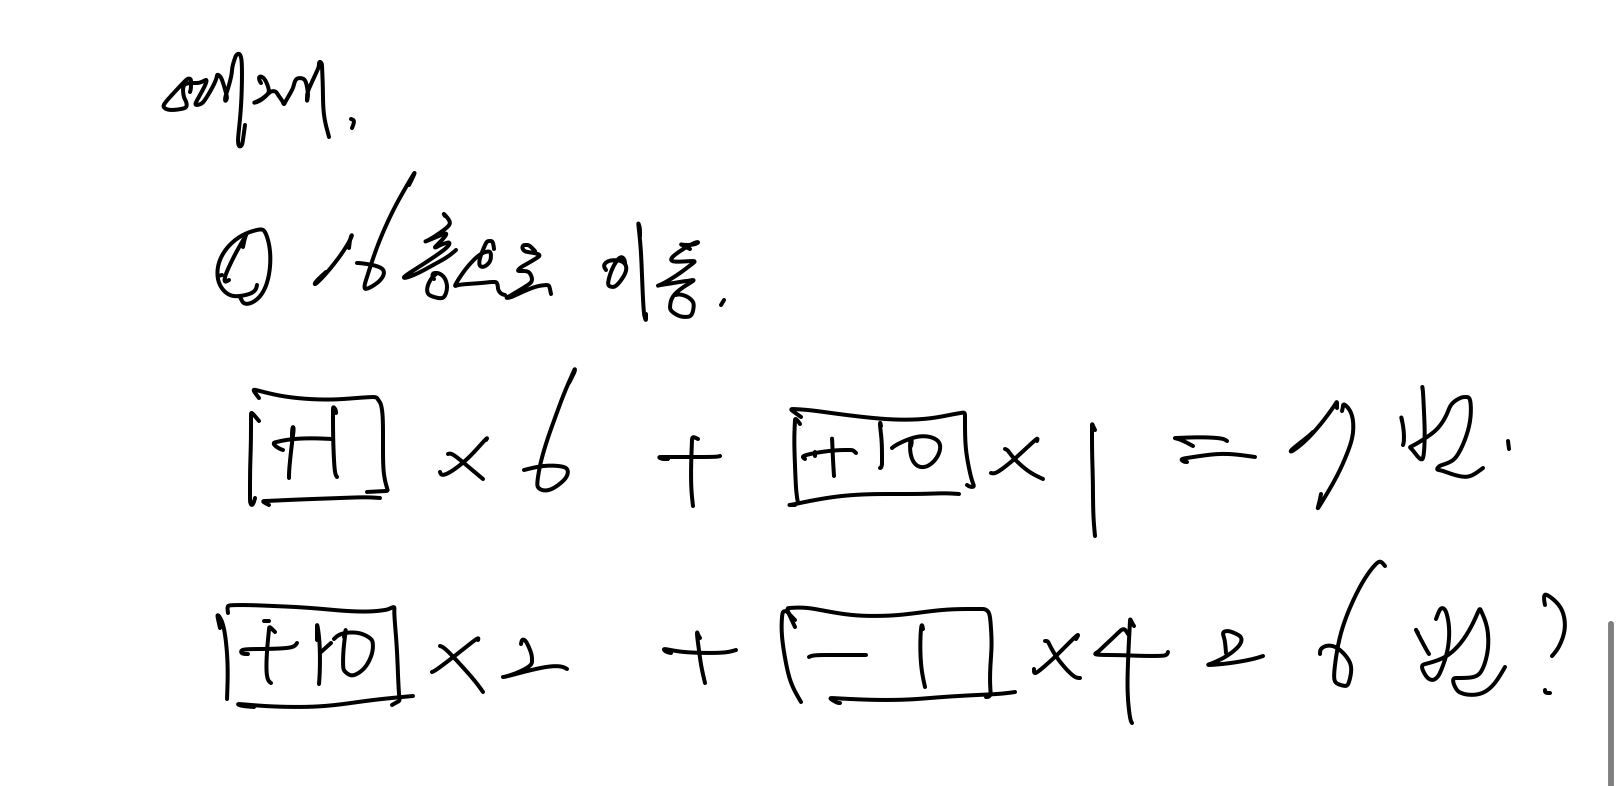 예제.
① 16층으로 이동.
+1 × 6 + +10 × 1 = 7번.
+10 × 2 + -1 × 4 = 6번?